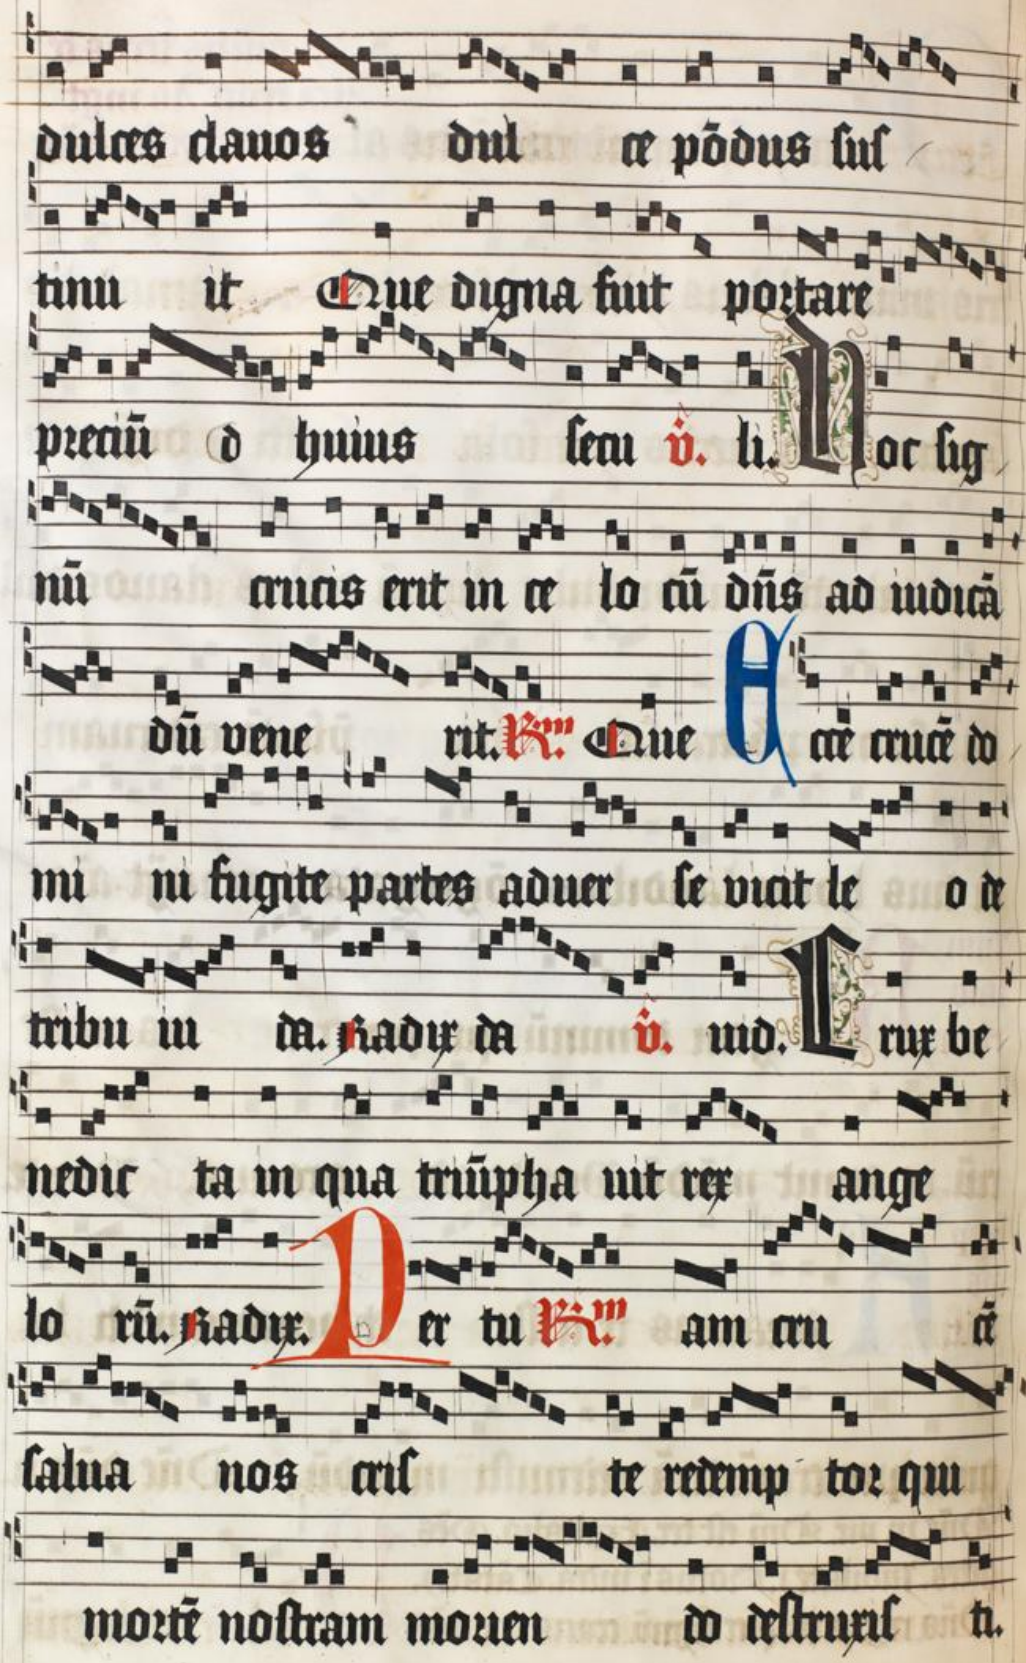 dulces clauos dul ce põdus sus
tinu it Que digna fuit portare
preciũ d huius secu v̄. li. Hoc sig
nũ crucis erit in ce lo cũ dn̄s ad iudicā
dũ vene rit. Rm. Que Ecce crucē do
mi ni fugite partes aduer se vicit le o de
tribu iu da. Radix da v̄. uid. Crux be
nedic ta in qua triũpha uit rex ange
lo rũ. Radix. Per tu Rm. am cru cē
salua nos cris te redemp tor qui
mortē nostram morien do destruxis ti.